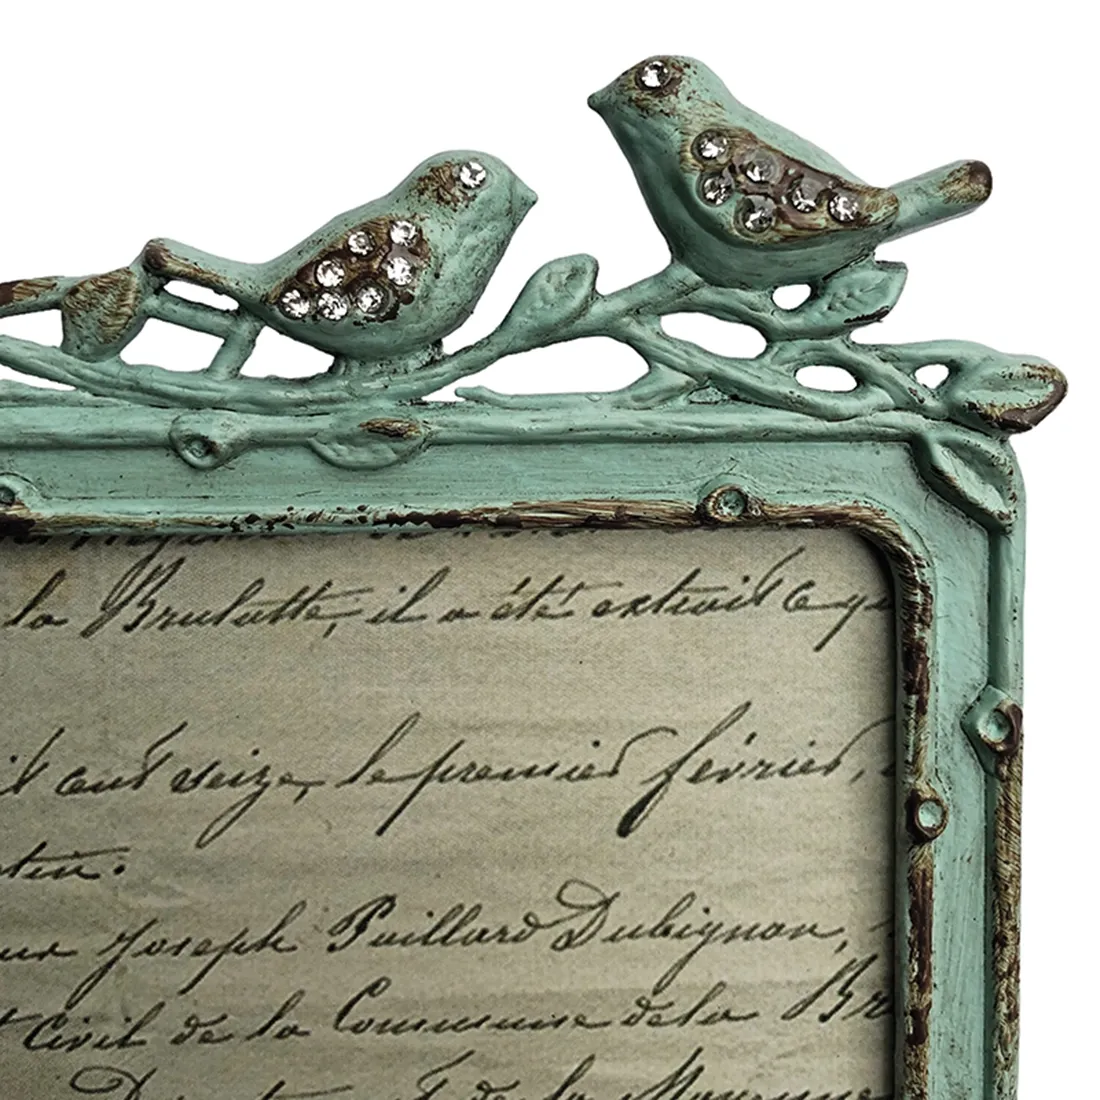 la Brulatte, il a été extrait ce qu
il cent seize, le premier février,
Joseph Paillard Dubignon,
t Civil de la Commune de la Br
de la Mayenne